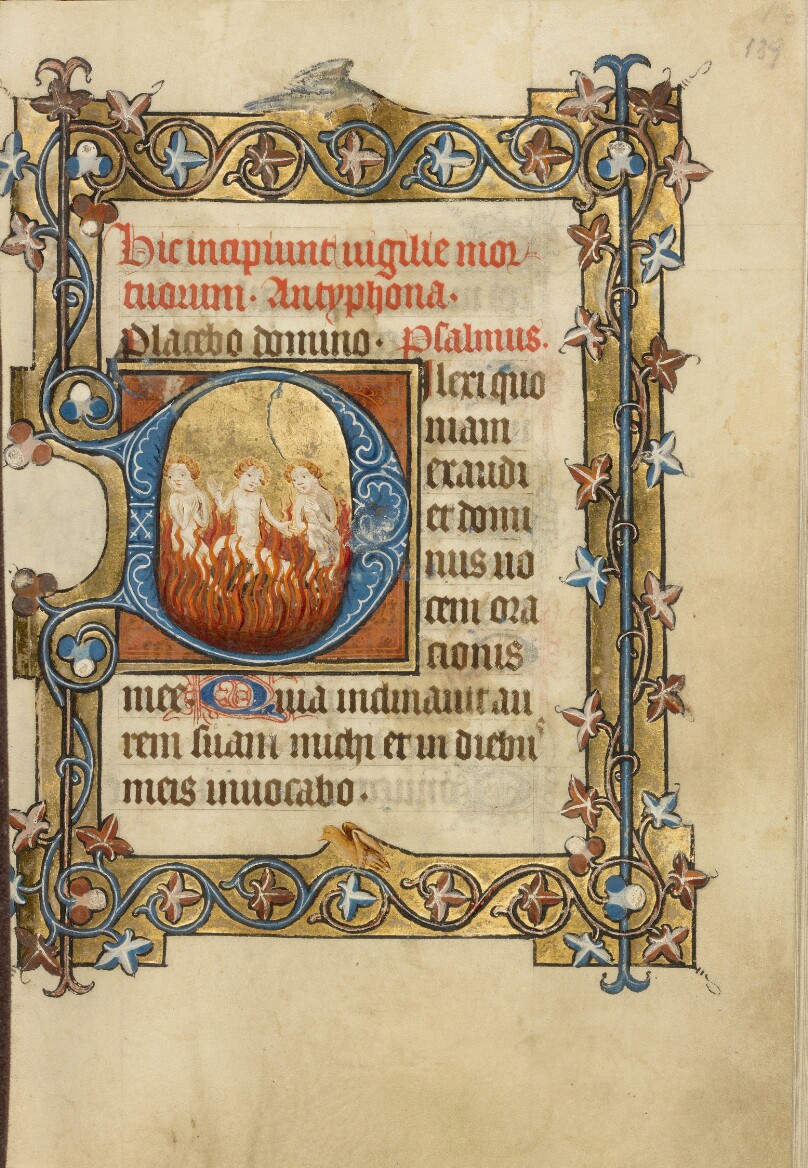 139
Hic incipiunt vigilie mor-
tuorum. Antyphona.
Placebo domino. Psalmus.
Dilexi quo
niam
exaudi
et domi
nus vo
cem ora
tionis
mee. Quia inclinavit au
rem suam michi et in diebus
meis invocabo.